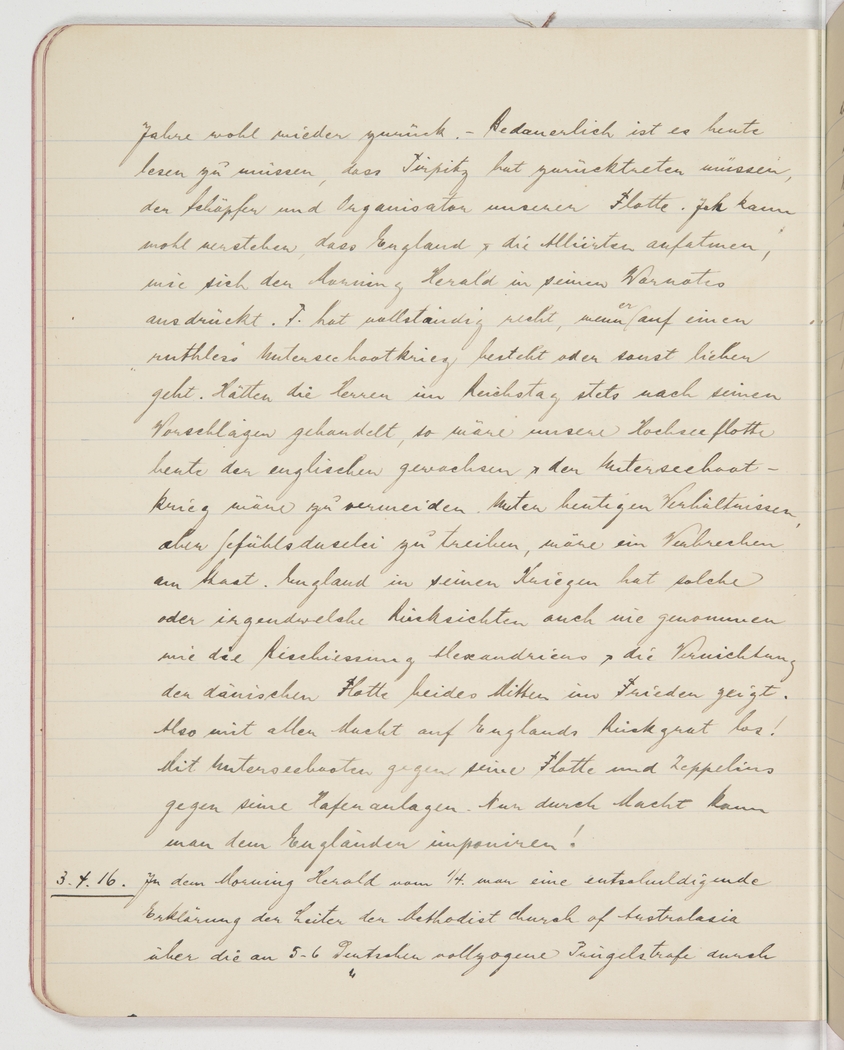 Jahre wohl wieder zurück. – Bedauerlich ist es heute
lesen zu müssen, dass Tirpitz hat zurücktreten müssen,
der Schöpfer und Organisator unserer Flotte. Ich kann
wohl verstehen, dass England & die Alliirten aufatmen,
wie sich der Morning Herald in seinen Warnotes
ausdrückt. T. hat vollständig recht, wenn er auf einen
"ruthless" Unterseebootkrieg besteht oder sonst lieber
geht. Hätten die Herren im Reichstag stets nach seinen
Vorschlägen gehandelt, so wäre unsere Hochseeflotte
heute der englischen gewachsen & der Unterseeboot-
krieg wäre zu vermeiden. Unter heutigen Verhältnissen,
aber Gefühlsduselei zu treiben, wäre ein Verbrechen
am Staat. England in seinen Kriegen hat solche
oder irgendwelche Rücksichten auch nie genommen
wie die Beschiessung Alexandriens & die Vernichtung
der dänischen Flotte beides Mitten im Frieden zeigt.
Also mit aller Macht auf Englands Rückgrat los!
Mit Unterseebooten gegen seine Flotte und Zeppelins
gegen seine Hafenanlagen. Nur durch Macht kann
man dem Engländer imponiren!
3.4.16. In dem Morning Herald vom 1/4. war eine entschuldigende
Erklärung der Leiter der Methodist Church of Australasia
über die an 5-6 Deutschen vollzogene Prügelstrafe durch